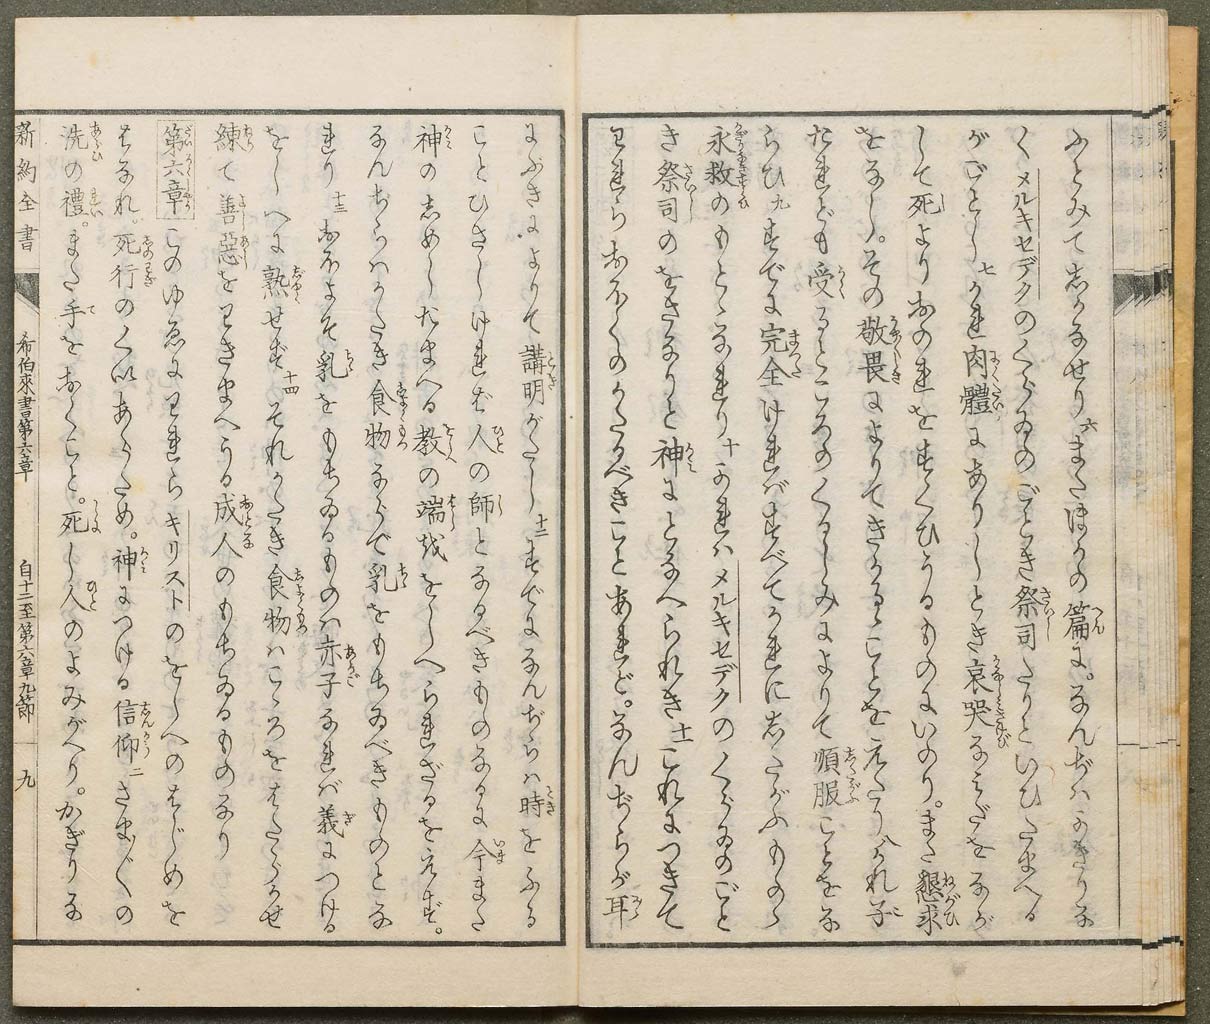 ふとみて志かなせり六またほかの篇に。なんぢハかぎりな
くメルキセデクのくらゐのごとき祭司たりといひたまへる
がごとし七かれ肉體にありしとき哀哭なみだをなが
して死よりおのれをすくひうるものにいのり。また懇求
をなし。その敬畏によりてきかるることをえたり八かれ子
たれども受るところのくるしみによりて順服ことをな
らひ九すでに完全けれバすべてかれに志たがふものゝ
永救のもとゝなれり十かれハメルキセデクのくらゐのごと
き祭司のをさなりと神にとなへられき十一これにつきて
われらおほくのかたるべきことあれど。なんぢらが耳
にぶきによりて講明がたし十二すでになんぢらハ時をふる
ことひさしけれバ人の師となるべきものなるに今また
神の志めしたまへる教の端緒ををしへられざるをえず。
なんぢらハかたき食物ならで乳をもちゐべきものとな
れり十三おほよそ乳をもちゐるものハ赤子なれバ義につける
をしへに熟せず十四それかたき食物ハこゝろをはたらかせ
練て善惡をわきまへうる成人のもちゐるものなり
第六章 このゆゑにわれらキリストのをしへのはじめを
はなれ。死行のくいあらため。神につける信仰二さまざまの
洗の禮。また手をおくこと。死し人のよみがへり。かぎりな
新約全書 希伯來書第六章 自十二至第六章九節 九